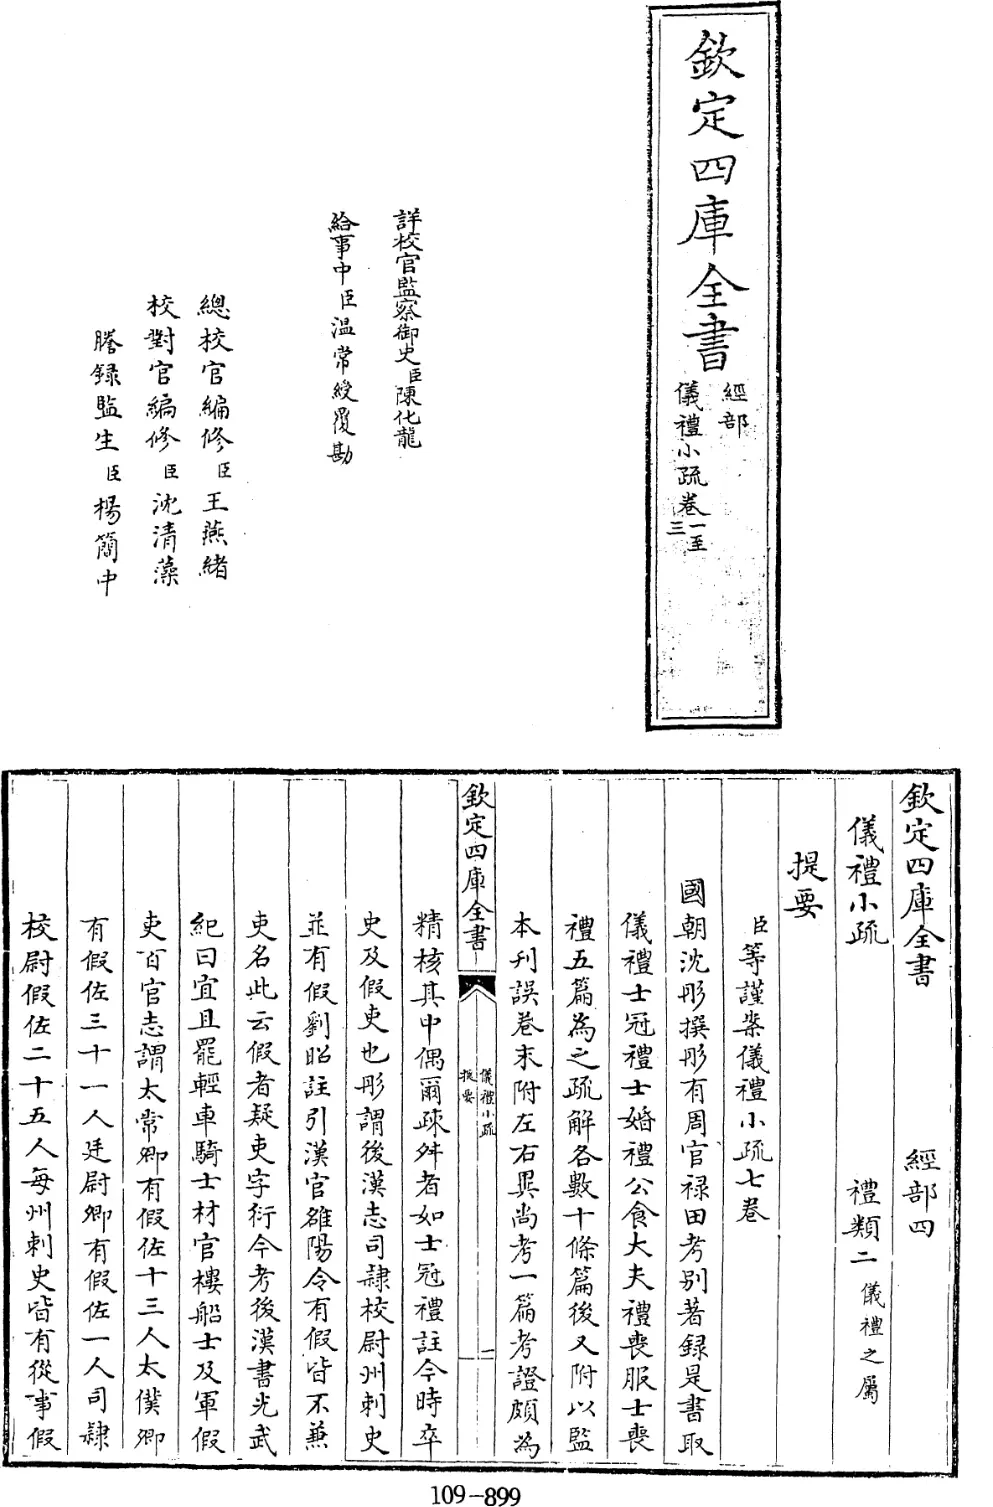 欽定四庫全書
經部
儀禮小疏卷一至三
詳校官監察御史臣陳化龍
給事中臣溫常綬覆勘
總校官編修臣王燕緒
校對官編修臣沈清藻
謄録監生臣楊簡中
欽定四庫全書 經部四
儀禮小疏 禮類二 儀禮之屬
提要
臣等謹案儀禮小疏七卷
國朝沈彤撰彤有周官禄田考别著録是書取
儀禮士冠禮士婚禮公食大夫禮喪服士喪
禮五篇為之疏解各數十條篇後又附以監
本刋誤卷末附左右異尚考一篇考證頗為
欽定四庫全書
儀禮小疏
提要
一
精核其中偶爾疎舛者如士冠禮註今時卒
史及假吏也彤謂後漢志司隷校尉州刺史
並有假劉昭註引漢官雒陽令有假皆不兼
吏名此云假者疑吏字衍今考後漢書光武
紀曰宜且罷輕車騎士材官樓船士及軍假
吏百官志謂太常卿有假佐十三人太僕卿
有假佐三十一人廷尉卿有假佐一人司隷
校尉假佐二十五人每州刺史皆有從事假
109-899